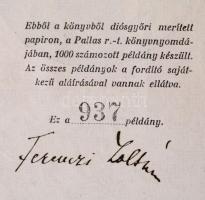 Ebből a könyvből diósgyőri merített
papiron, a Pallas r.-t. könyvnyomdá-
jában, 1000 számozott példány készült.
Az összes példányok a fordító saját-
kezű aláírásával vannak ellátva.
Ez a 937 példány.
Ferenczi Zoltán